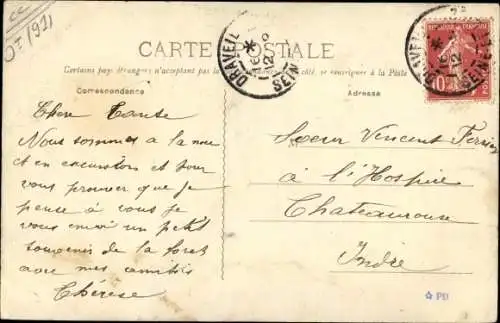 CARTE POSTALE
Certains pays étrangers n'acceptant pas la côté, se renseigner à la Poste
Correspondance
Adresse
DRAVEIL
SEINE
DRAVEIL
SEINE
10
Chère Tante
Nous sommes à la
et en excursion et pour
vous prouver que je
pense à vous je
vous envoi un petit
souvenir de la foret
avec mes amitiés
Thérèse
Soeur Vincent
à l'Hospice
Chateauroux
Indre
PD